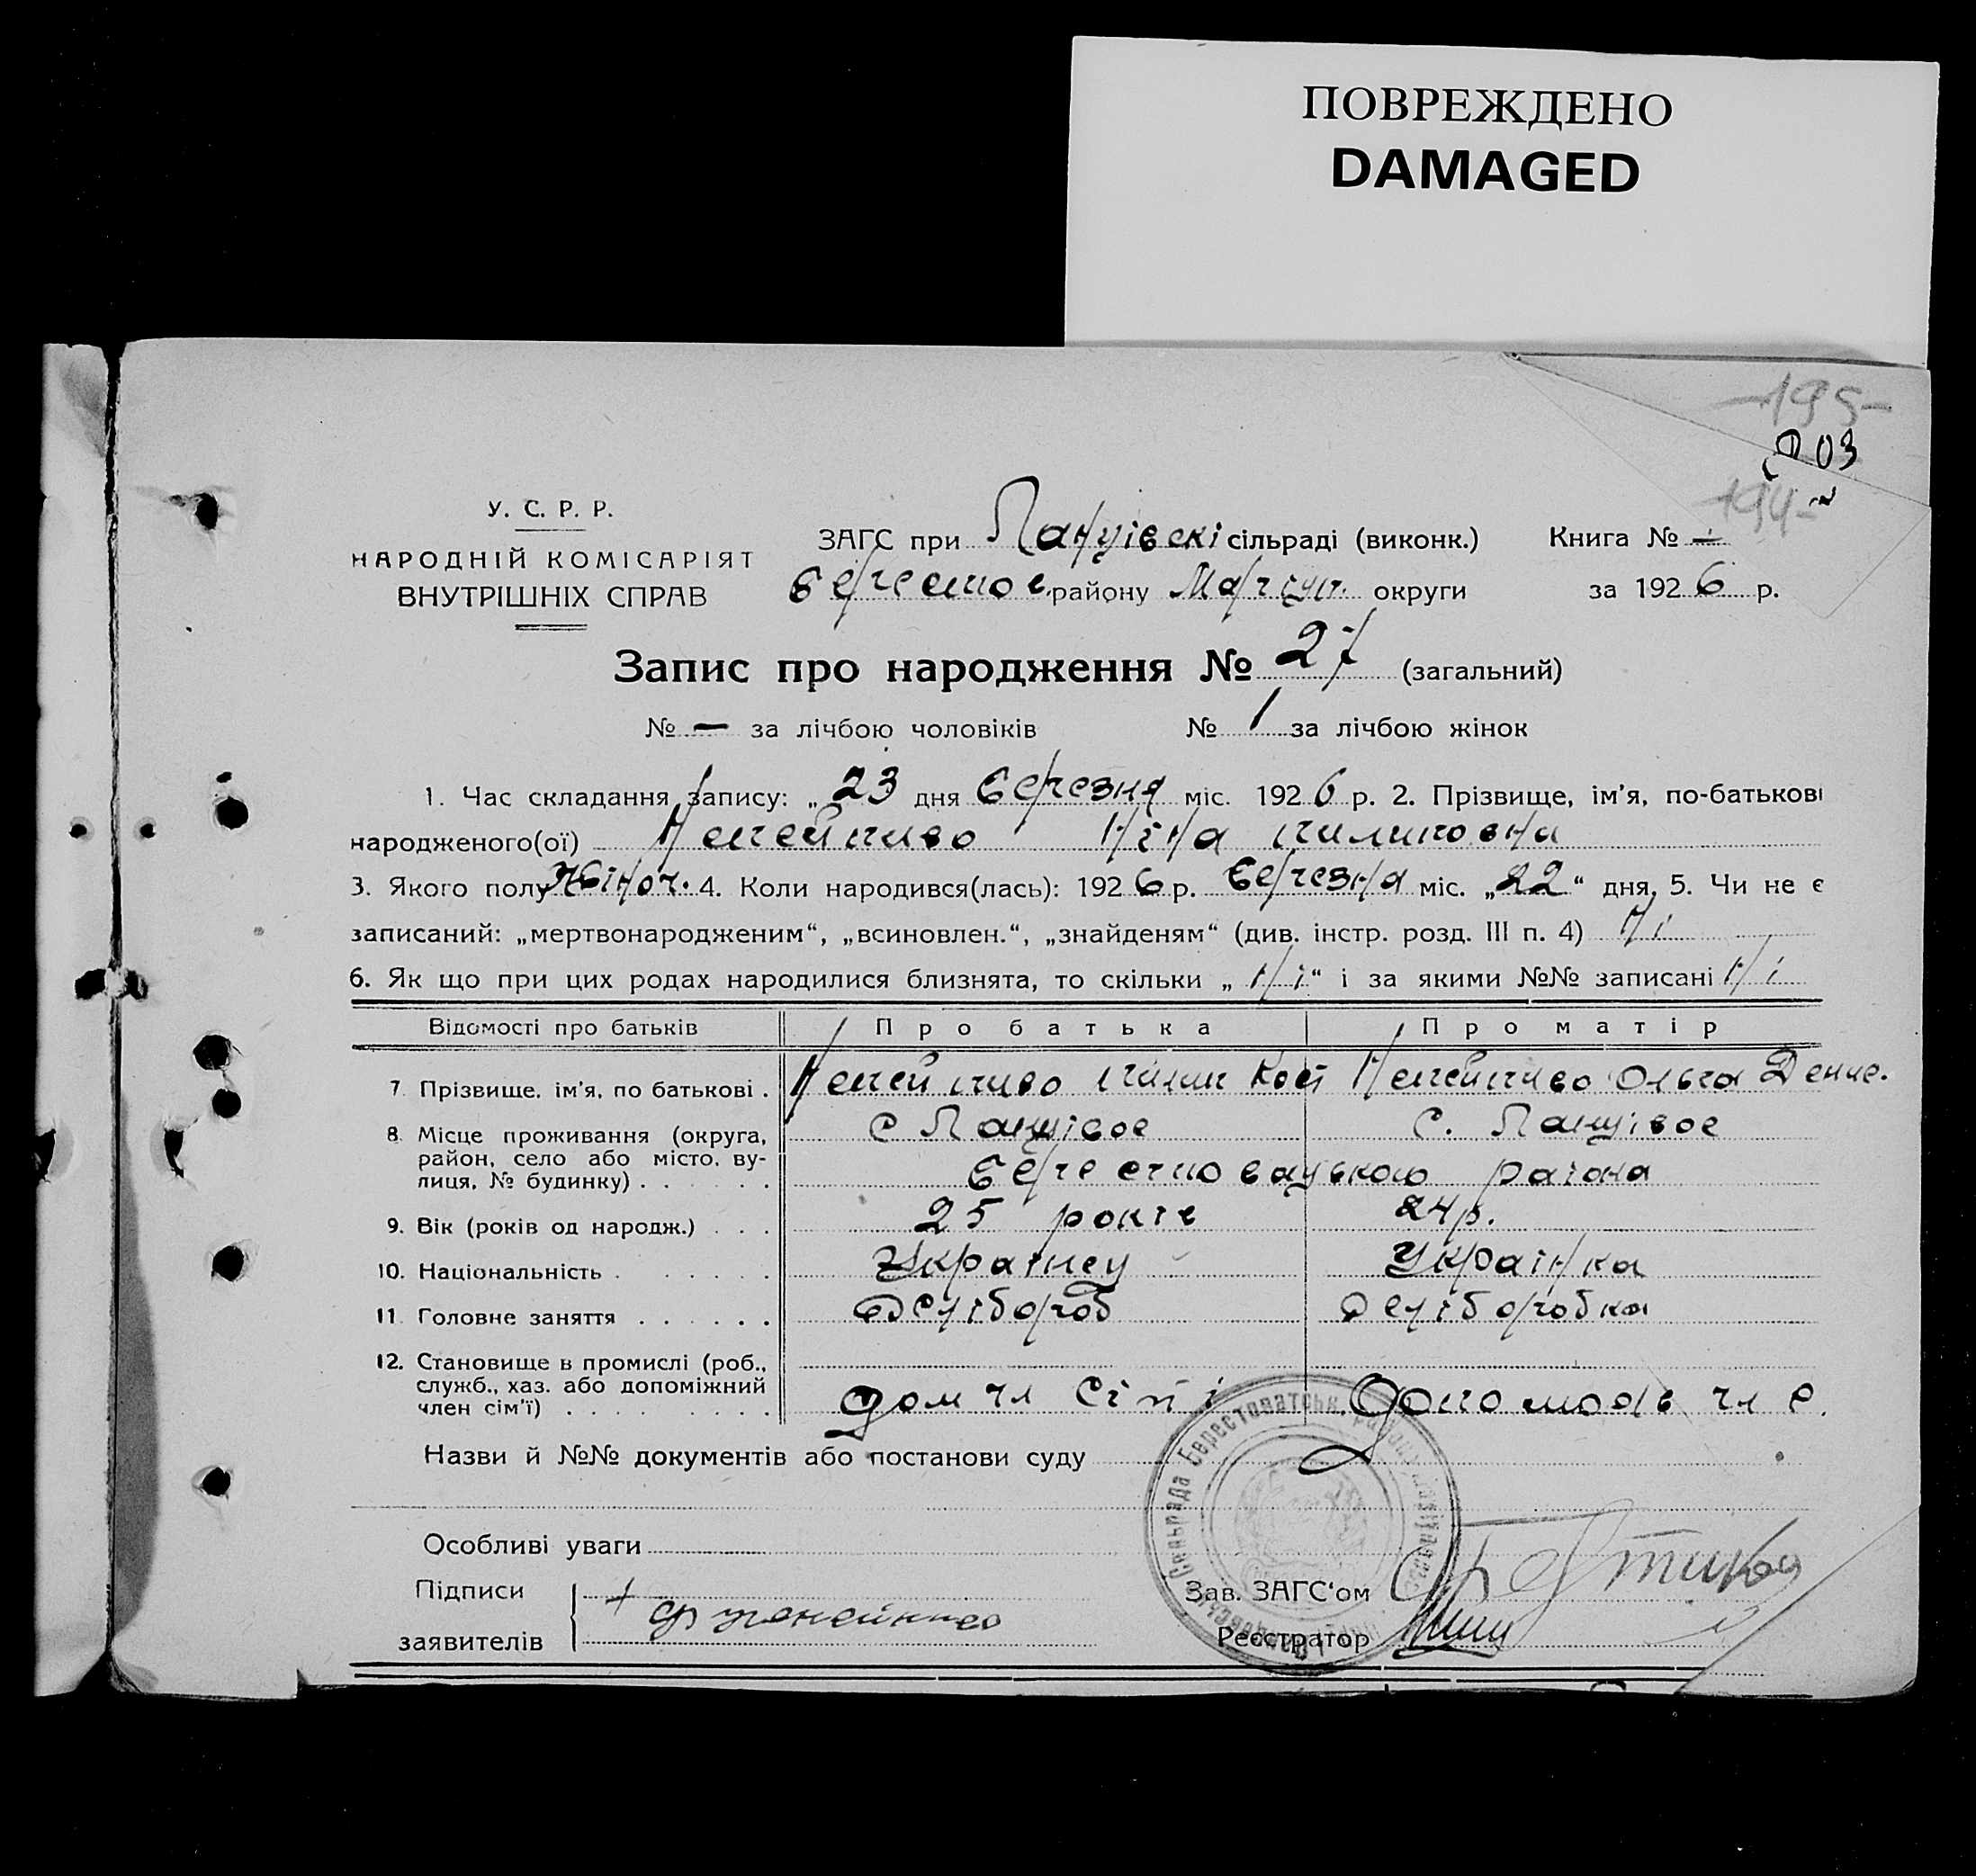 ПОВРЕЖДЕНО
DAMAGED
-195-
203
-194-
У. С. Р. Р.
НАРОДНІЙ КОМІСАРІЯТ
ВНУТРІШНІХ СПРАВ
ЗАГС при Ланцівскі сільраді (виконк.) Книга № —
Берестов. району Маріуп. округи за 1926 р.
Запис про народження № 27 (загальний)
№ — за лічбою чоловіків № 1 за лічбою жінок
1. Час складання запису: „23 дня березня міс. 1926 р. 2. Прізвище, ім'я, по-батькові
народженого(ої) Непейпиво Ніна Пилиповна
3. Якого полу жіноч. 4. Коли народився(лась): 1926 р. березня міс. „22“ дня, 5. Чи не є
записаний: „мертвонародженим“, „всиновлен.“, „знайденям“ (див. інстр. розд. III п. 4) Ні
6. Як що при цих родах народилися близнята, то скільки „Ні“ і за якими №№ записані Ні
Відомості про батьків Про батька Про матір
7. Прізвище, ім'я, по батькові . Непейпиво Пилип Кост Непейпиво Ольга Демид.
8. Місце проживання (округа, район, село або місто, вулиця, № будинку) . . . . . . с Ланцівое с. Ланцівое
Берестовацького района
9. Вік (років од народж.) . . . 25 років 24 р.
10. Національність . . . . . . Українец Українка
11. Головне заняття . . . . . . Хлібороб Хліборобка
12. Становище в промислі (роб., служб., хаз. або допоміжний член сім'ї) . . . . . . . . . дом чл сімї чл с.
Назви й №№ документів або постанови суду
Особливі уваги
Підписи
заявителів
+
Непейпиво
Зав. ЗАГС'ом
Реєстратор
Сельрада Берестоватськ.